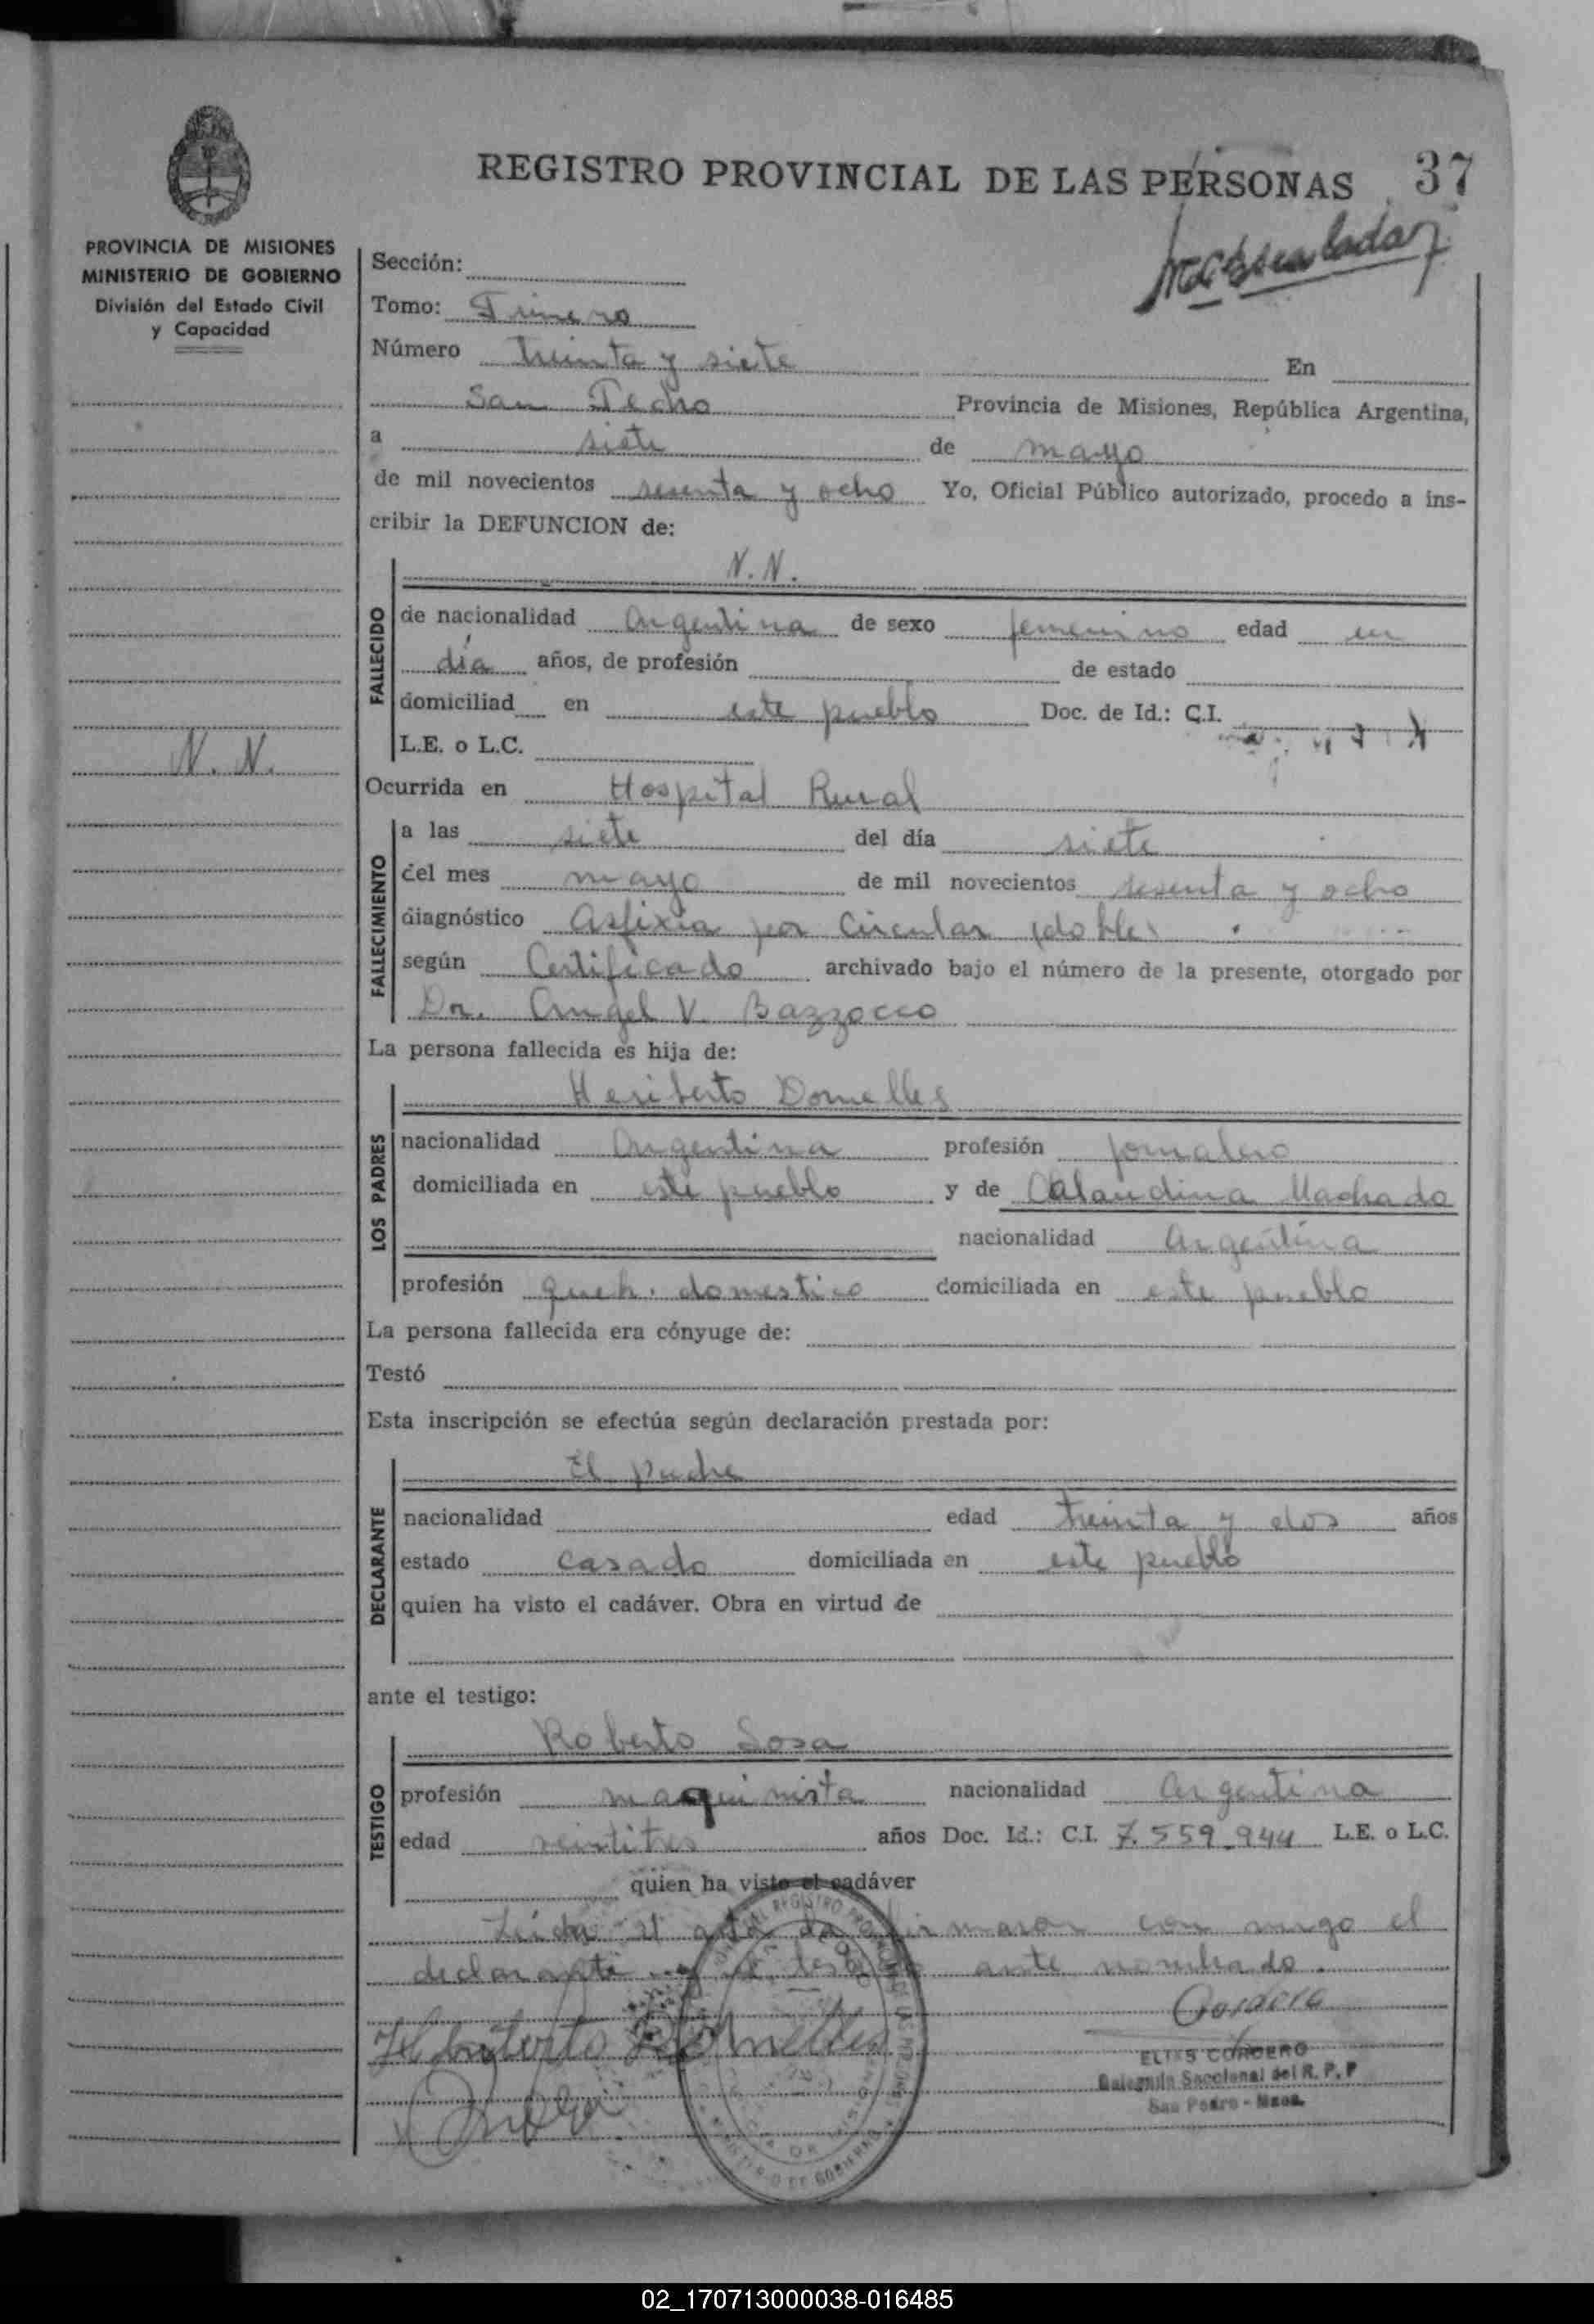 REGISTRO PROVINCIAL DE LAS PERSONAS 37
PROVINCIA DE MISIONES
MINISTERIO DE GOBIERNO
División del Estado Civil
y Capacidad
N. N.
Sección:
Tomo: Primero
Número treinta y siete En
San Pedro Provincia de Misiones, República Argentina,
a siete de mayo
de mil novecientos sesenta y ocho Yo, Oficial Público autorizado, procedo a ins-
cribir la DEFUNCION de:
N. N.
FALLECIDO
de nacionalidad Argentina de sexo femenino edad un
día años, de profesión de estado
domiciliad en este pueblo Doc. de Id.: C.I.
L.E. o L.C.
Ocurrida en Hospital Rural
FALLECIMIENTO
a las siete del día siete
del mes mayo de mil novecientos sesenta y ocho
diagnóstico Asfixia por Circular (doble)
según Certificado archivado bajo el número de la presente, otorgado por
Dr. Angel V. Bazzocco
La persona fallecida es hija de:
LOS PADRES
Heriberto Dornelles
nacionalidad Argentina profesión Jornalero
domiciliada en este pueblo y de Claudina Machado
nacionalidad Argentina
profesión queh. domestico domiciliada en este pueblo
La persona fallecida era cónyuge de:
Testó
Esta inscripción se efectúa según declaración prestada por:
DECLARANTE
El padre
nacionalidad edad treinta y dos años
estado casado domiciliada en este pueblo
quien ha visto el cadáver. Obra en virtud de
ante el testigo:
TESTIGO
Roberto Sosa
profesión maquinista nacionalidad Argentina
edad veintitres años Doc. Id.: C.I. 7.559.944 L.E. o L.C.
quien ha visto el cadáver
Leída el acta la firmaron con migo el
declarante y el testigo ante nombrado.
Cordero
Heriberto Dornelles
ELIAS CORDERO
Delegado Seccional del R. P. P
San Pedro - Mnes.
02_170713000038-016485